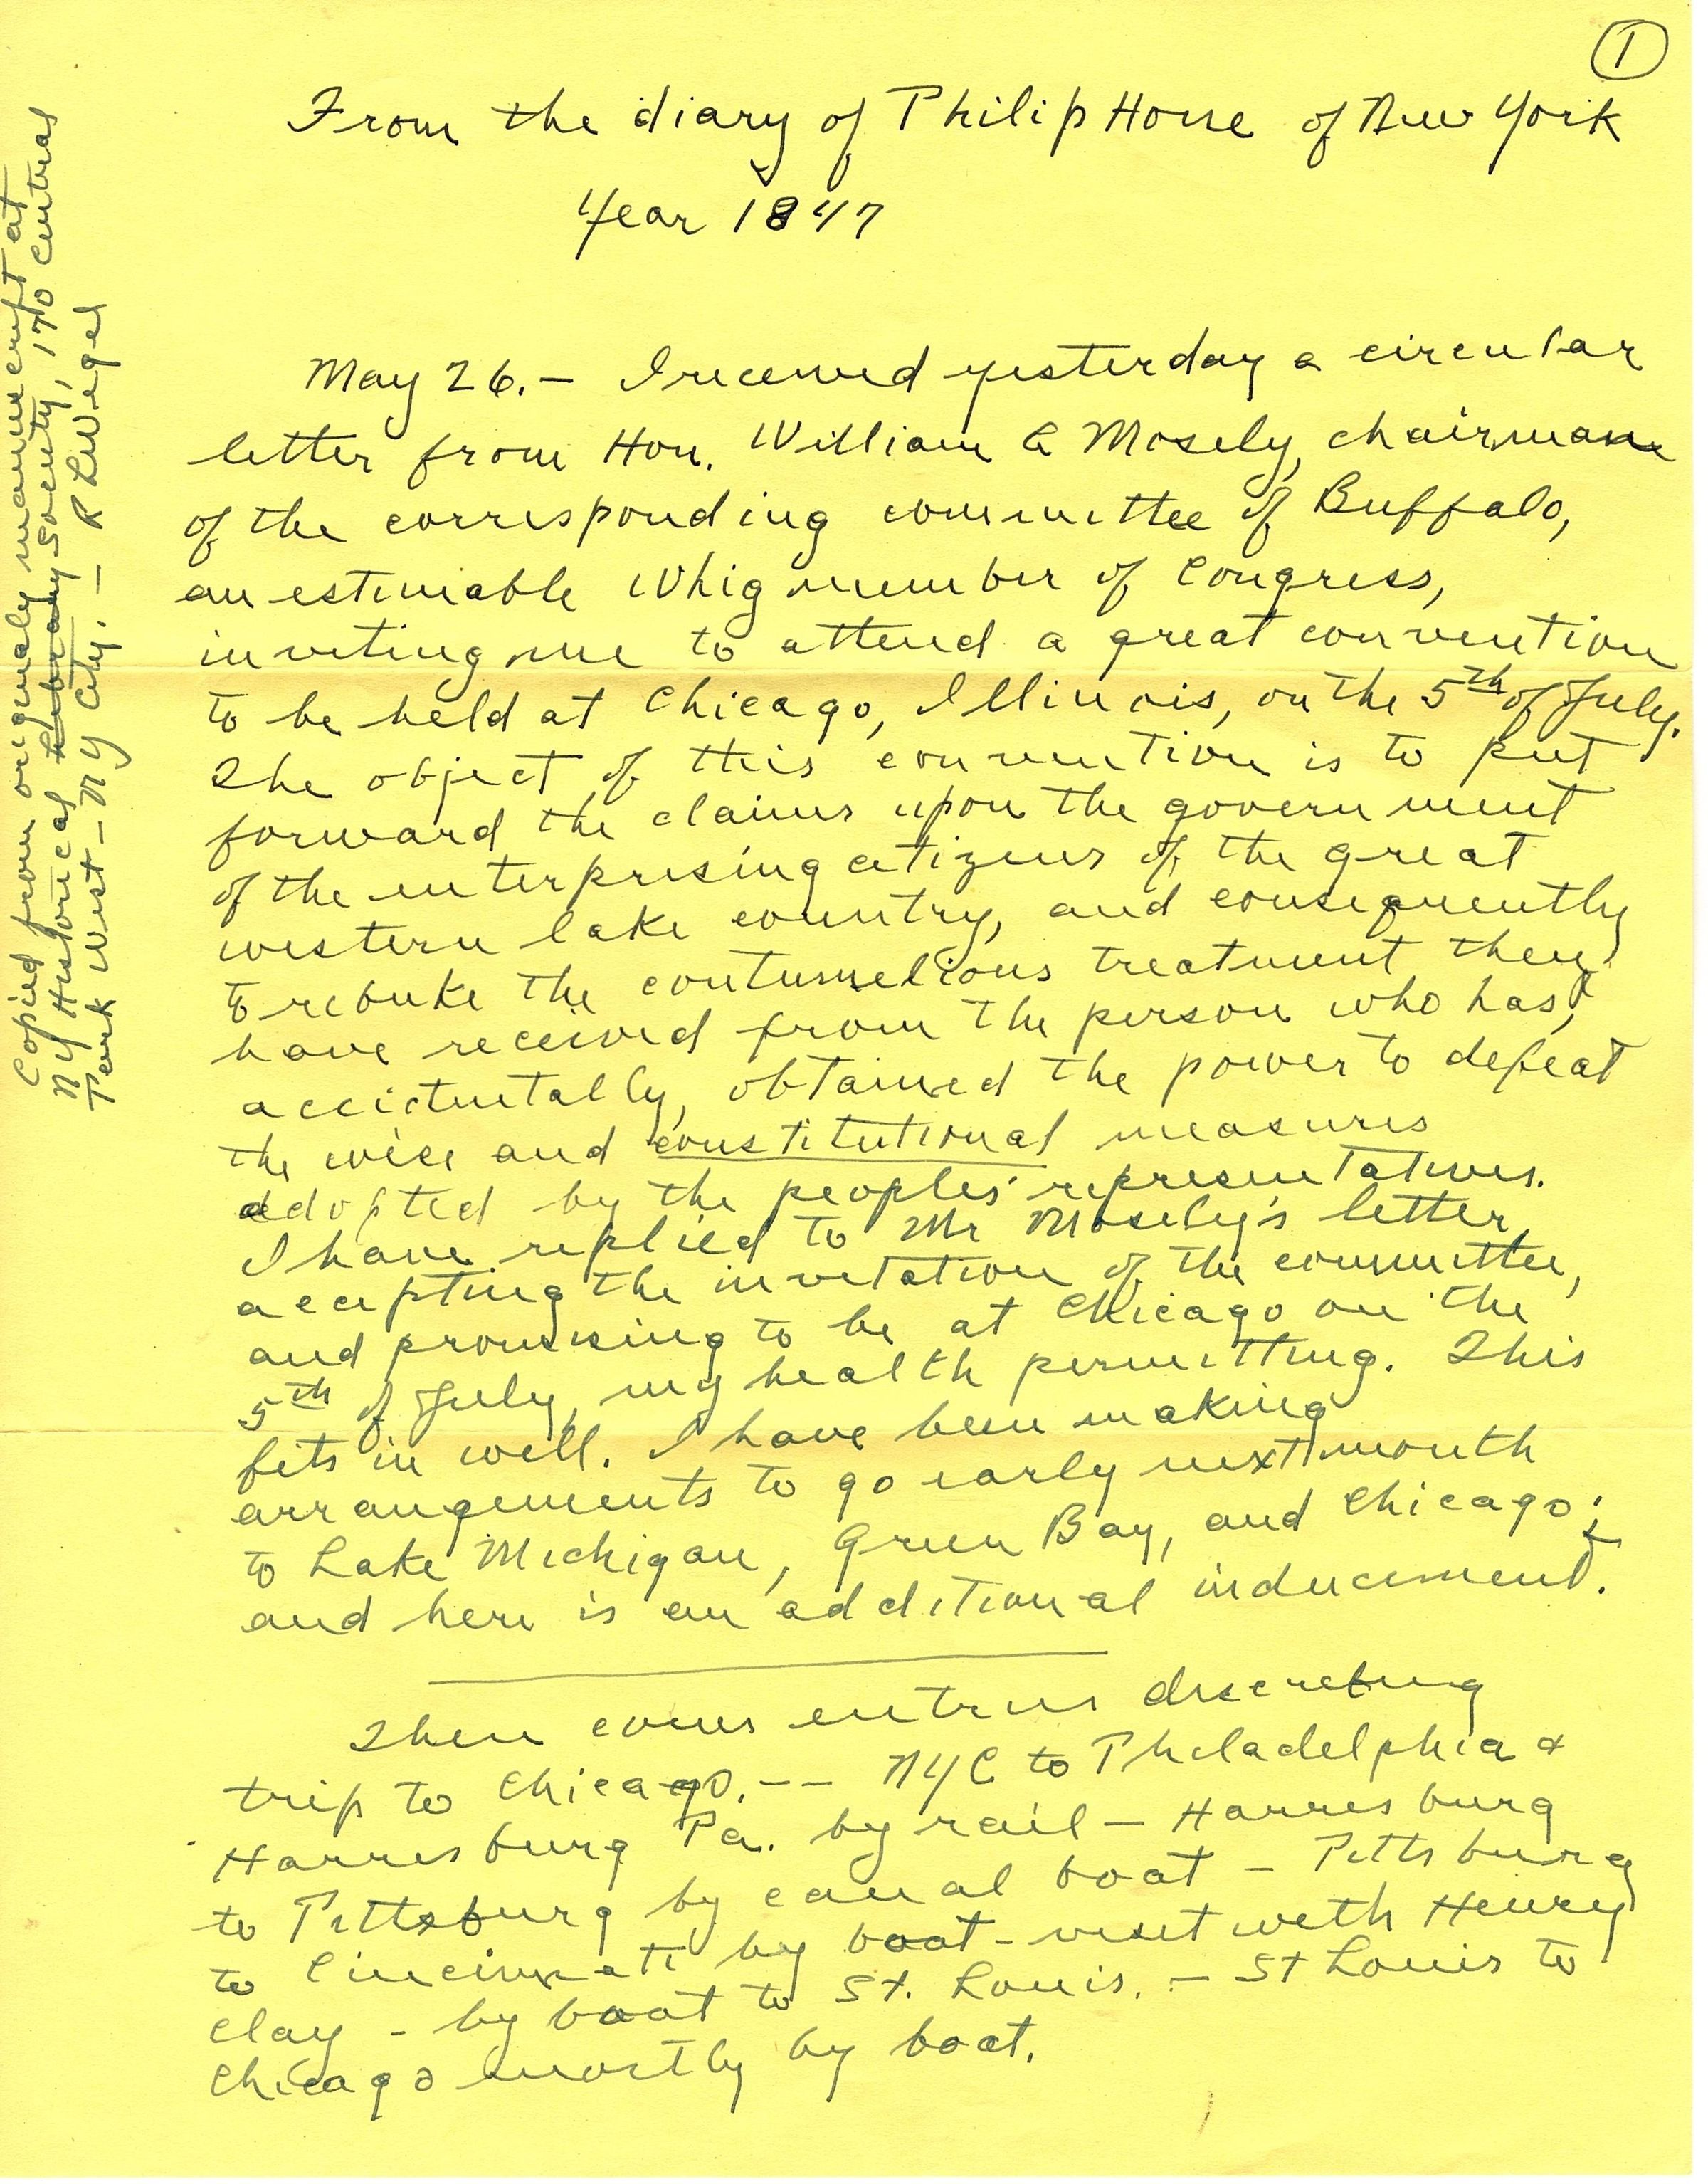 1
From the diary of Philip Hone of New York
Year 1847
May 26.– I received yesterday a circular
letter from Hon. William A Mosely, chairman
of the corresponding committee of Buffalo,
an estimable Whig member of Congress,
inviting me to attend a great convention
to be held at Chicago, Illinois, on the 5th of July.
The object of this convention is to put
forward the claims upon the government
of the enterprising citizens of the great
western lake country, and consequently
to rebuke the contumelious treatment they
have received from the person who has,
accidentally, obtained the power to defeat
the wise and constitutional measures
adopted by the peoples' representatives.
I have replied to Mr Mosely's letter,
accepting the invitation of the committee,
and promising to be at Chicago on the
5th of July, my health permitting. This
fits in well. I have been making
arrangements to go early next month
to Lake Michigan, Green Bay, and Chicago;
and here is an additional inducement.
Then comes entries describing
trip to Chicago. -- NYC to Philadelphia &
Harrisburg Pa. by rail – Harrisburg
to Pittsburg by canal boat – Pittsburg
to Cincinnati by boat - visit with Henry
Clay - by boat to St. Louis. – St Louis to
Chicago mostly by boat.
Copied from originaly manuscript at
NY Historical Library Society, 170 Central
Park West – NY City. – R L Wegel